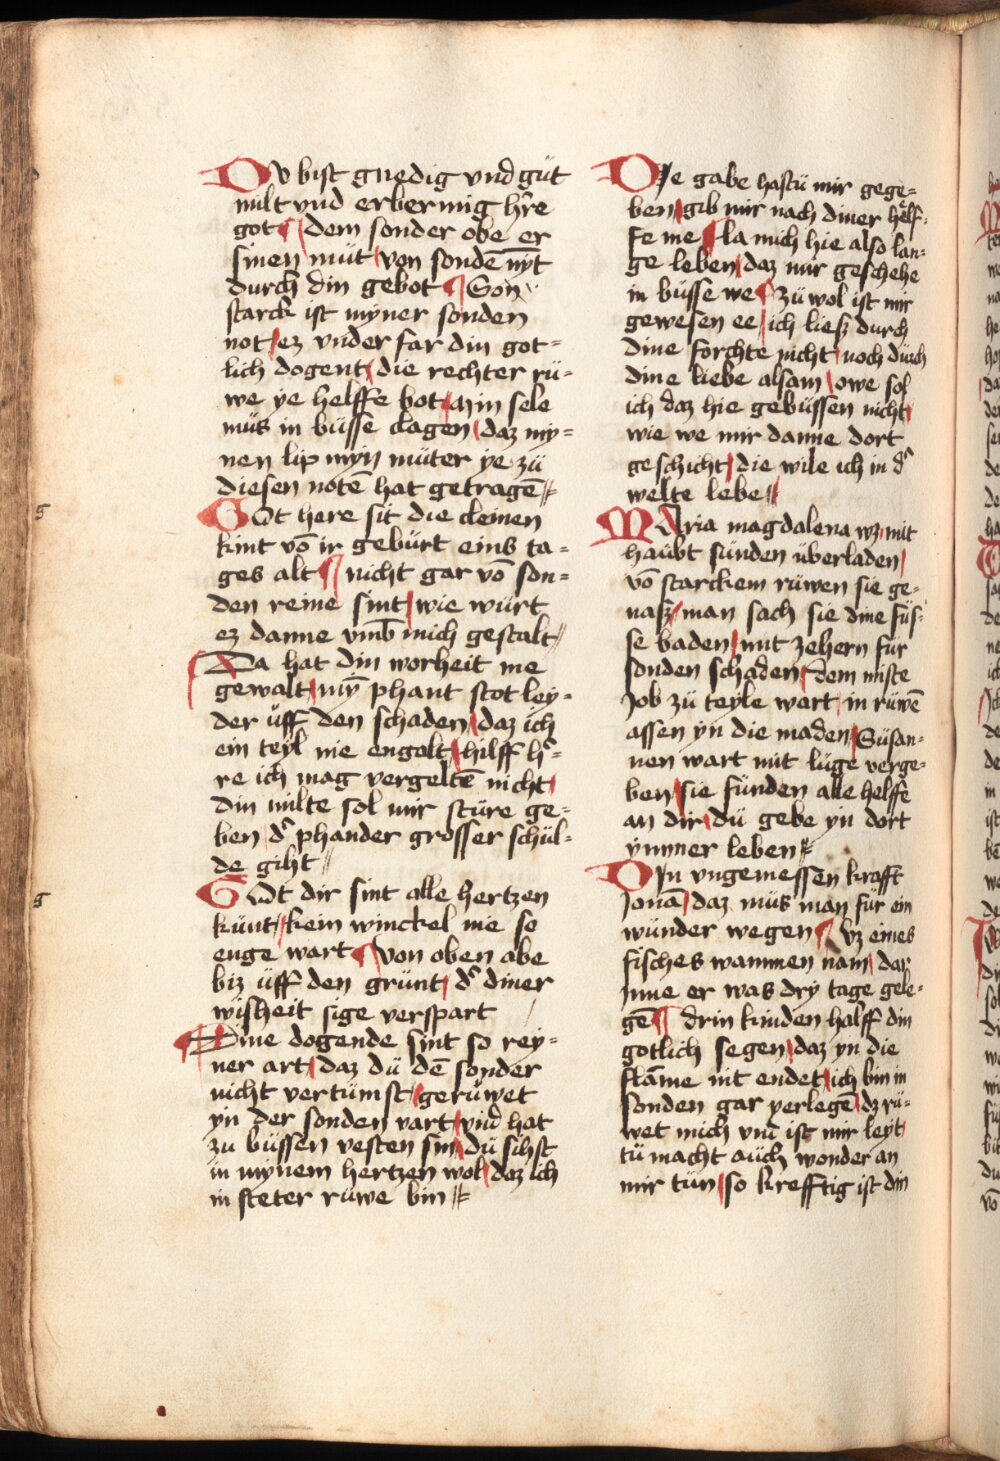 Dv bist gnedig vnd güt
milt vnd erbermig hr̄e
got dem sonder obe er
sinen müt von sondē nyt
durch din gebot Son
starck ist myner sonden
not ez vnder far din got=
lich dogent die rechter rü=
we ye helffe bot Min sele
müs in büsse clagen daz my=
nen lip myn müter ye zü
diesen notē hat getragē
g
Got here sit die cleinen
kint vō ir gebürt eins ta=
ges alt nicht gar vō son=
den reine sint wie würt
ez danne vmb mich gestalt
Da hat din worheit me
gewalt mȳ phant stot ley=
der üff den schaden daz ich
ein teyl nie engalt hilff h=
re ich mag vergeltē nicht
din milte sol mir stüre ge=
ben d' phander grosser schül=
de giht
g
Got dir sint alle hertzen
künt kein winckel nie so
enge wart von oben abe
biz üff den grünt d' diner
wisheit sige verspart
Dine dogende sint so rey=
ner art daz dü dē sonder
nicht vertümst gerüwet
yn der sonden vart vnd hat
zu büssen vesten sin dü sihst
in mynem hertzen wol daz ich
in steter rüwe bin
Dje gabe hastü mir gege=
ben gib mir nach diner helf=
fe me la mich hie also lan=
ge leben daz mir geschehe
in büsse we zü wol ist mir
gewesen ee ich ließ durch
dine forchte nicht noch dürch
dine liebe alsam owe sol
ich daz hie gebüssen nicht
wie we mir danne dort
geschicht die wile ich in d'
welte lebe
Maria magdalena wz mit
haübt sünden überladen
vō starckem rüwen sie ge=
naß man sach sie dine füs=
se baden mit zehern für
sonden schaden dem miste
Job zü teyle wart in rüwē
assen yn die maden Süsan=
nen wart mit lüge verge=
ben sie fünden alle helffe
an dir dü gebe yn dort
ymmer leben
Din vngemessen krafft
Jonā daz müs man für ein
wünder wegen vz eines
fisches wammen nam dar
Inne er was dry tage gele=
gē drin kinden halff din
gotlich segen daz yn die
flāme nit endet ich bin in
sonden gar verlegē dz rü=
wet mich vnd ist mir leyt
tü macht aüch wonder an
mir tün so krefftig ist din